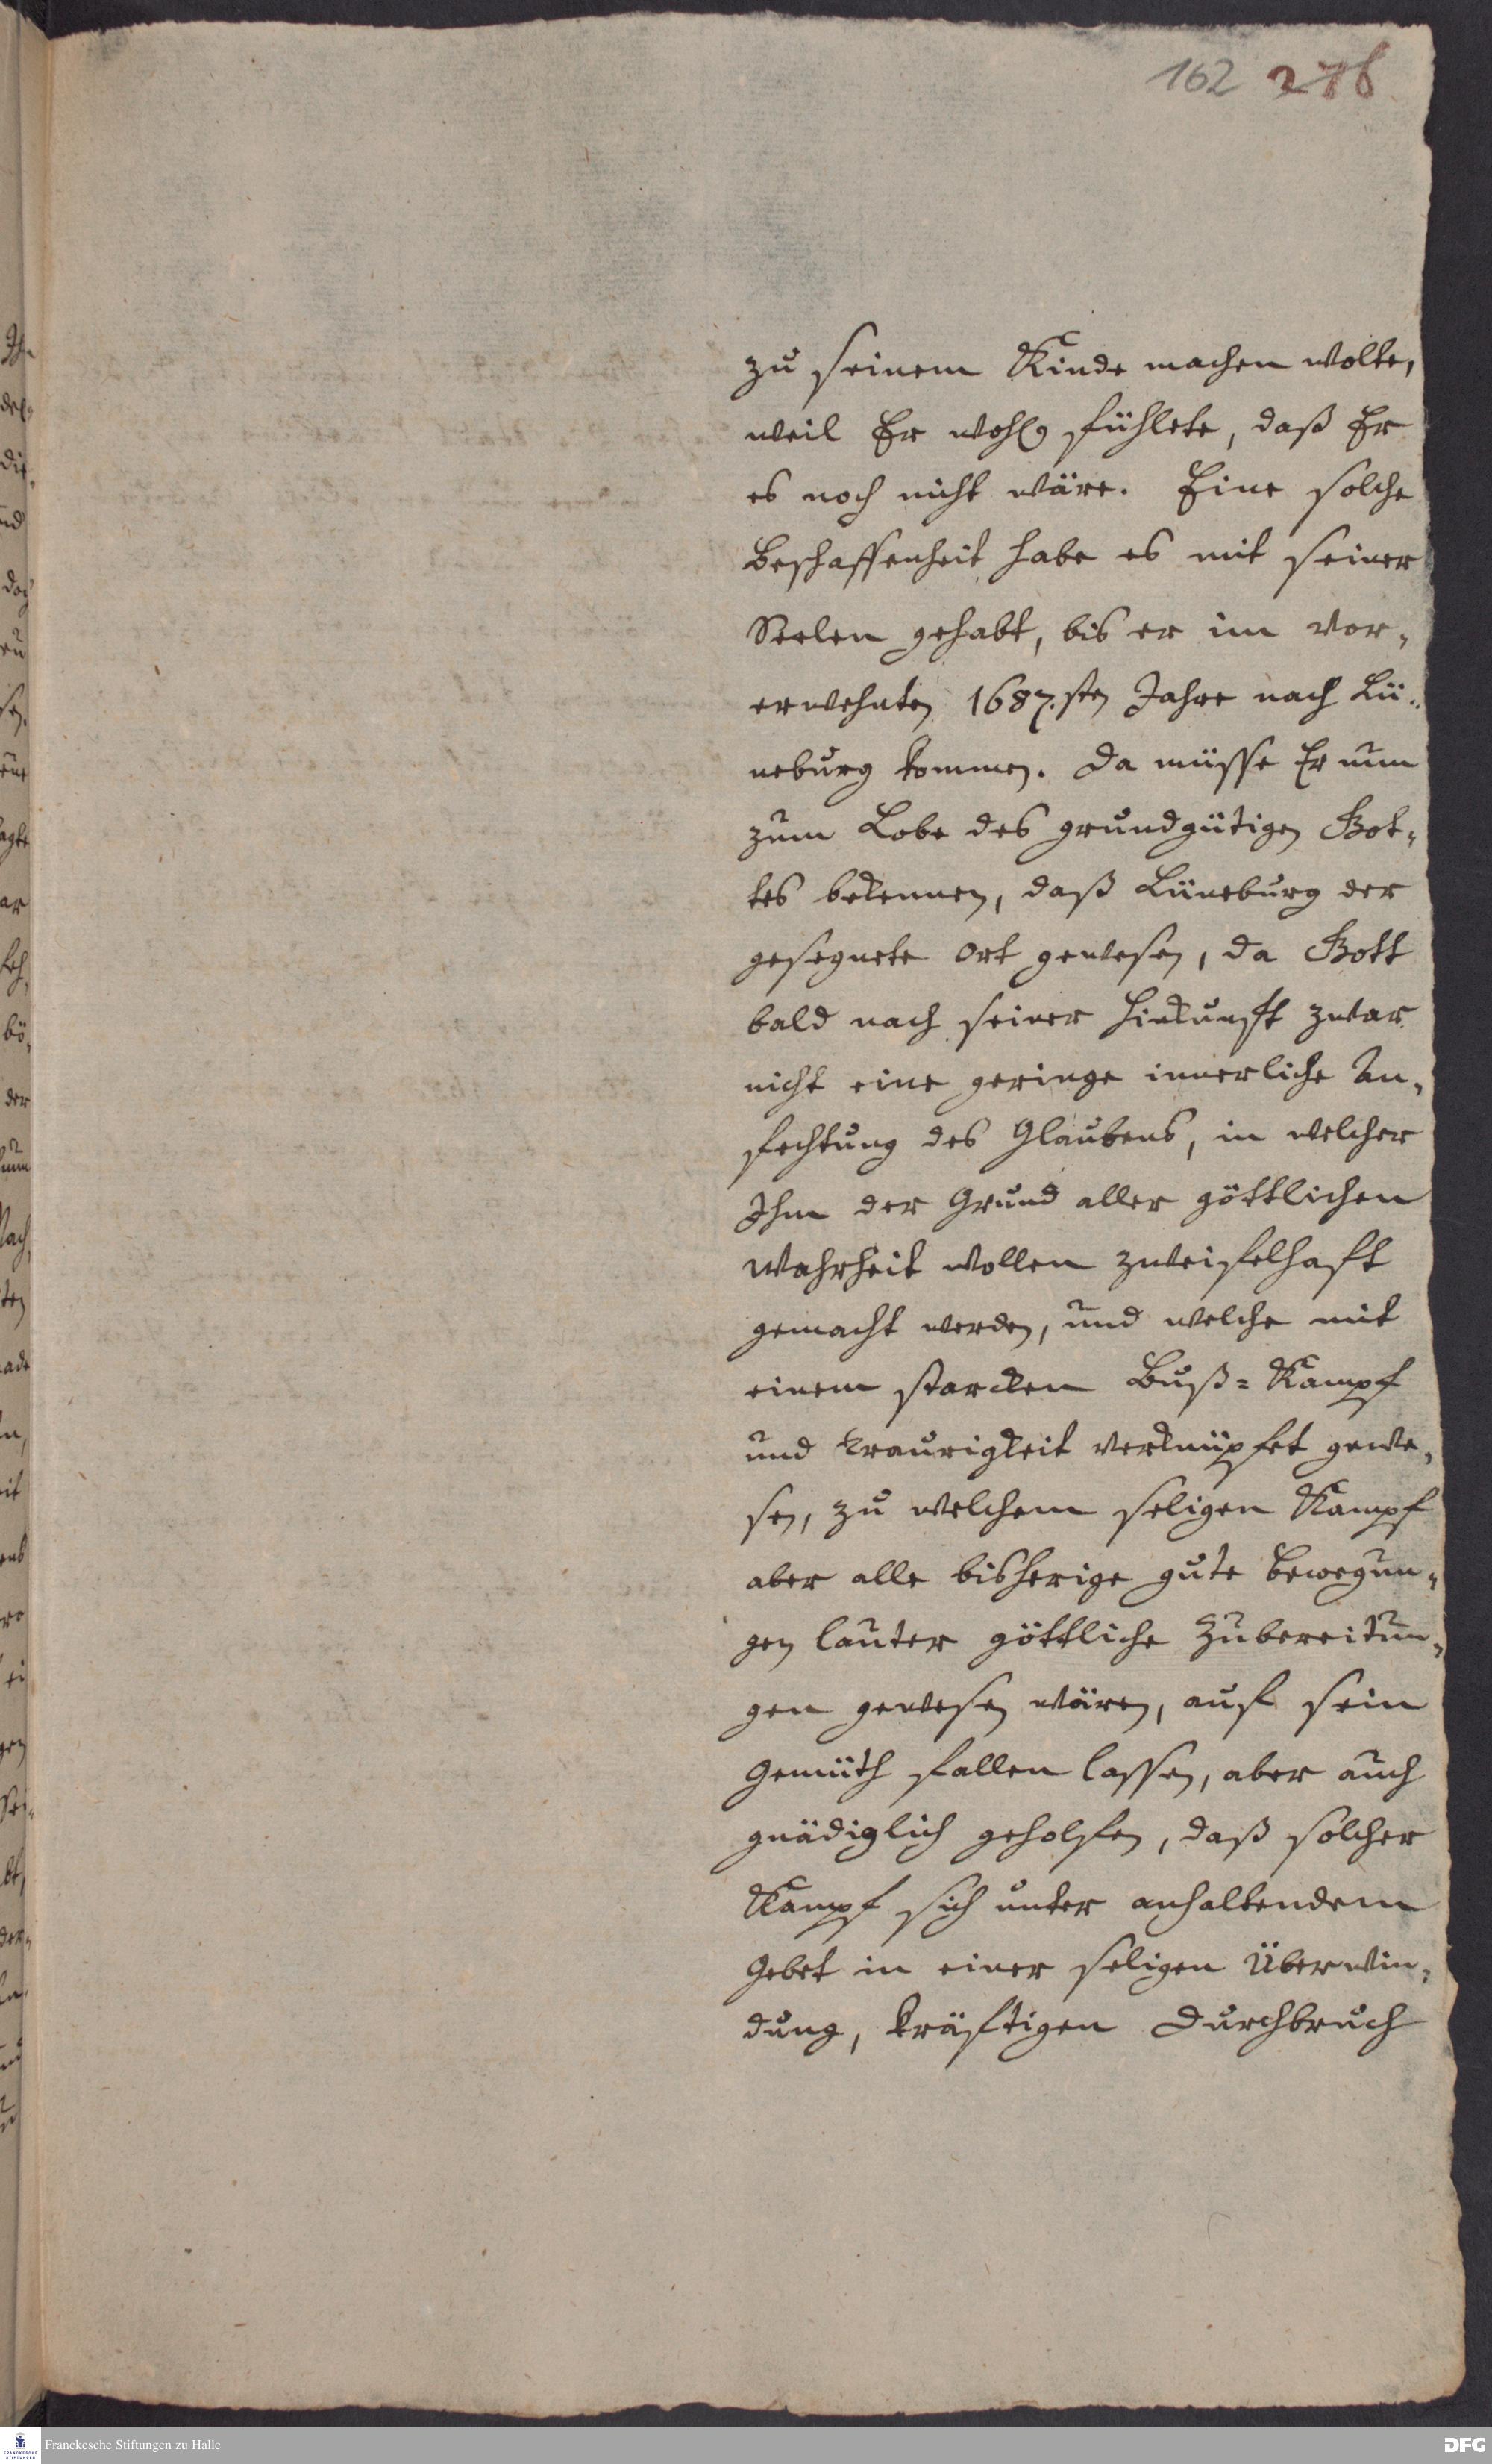 162 278
zu seinem Kinde machen wolte,
weil Er wohl fühlete, daß Er
es noch nicht wäre. Eine solche
Beschaffenheit habe es mit seiner
Seelen gehabt, bis er im vor-
erwehnten 1687.sten Jahre nach Lü-
neburg kommen. Da müsse Er nun
zum Lobe des grundgütigen Got-
tes bekennen, daß Lüneburg der
gesegnete Ort gewesen, da Gott
bald nach seiner Hinkunfft zwar
nicht eine geringe innerliche An-
fechtung des Glaubens, in welcher
Ihm der Grund aller göttlichen
Wahrheit wollen zweifelhafft
gemacht werden, und welche mit
einem starcken Buß= Kampf
und Traurigkeit verknüpfet gewe-
sen, zu welchem seligen Kampf
aber alle bisherige gute Bewegun-
gen lauter göttliche Zubereitun-
gen gewesen wären, auf sein
Gemüth fallen lassen, aber auch
gnädiglich geholfen, daß solcher
Kampf sich unter anhaltendem
Gebet in einer seligen Überwin-
dung, kräftigen Durchbruch
Franckesche Stiftungen zu Halle
DFG